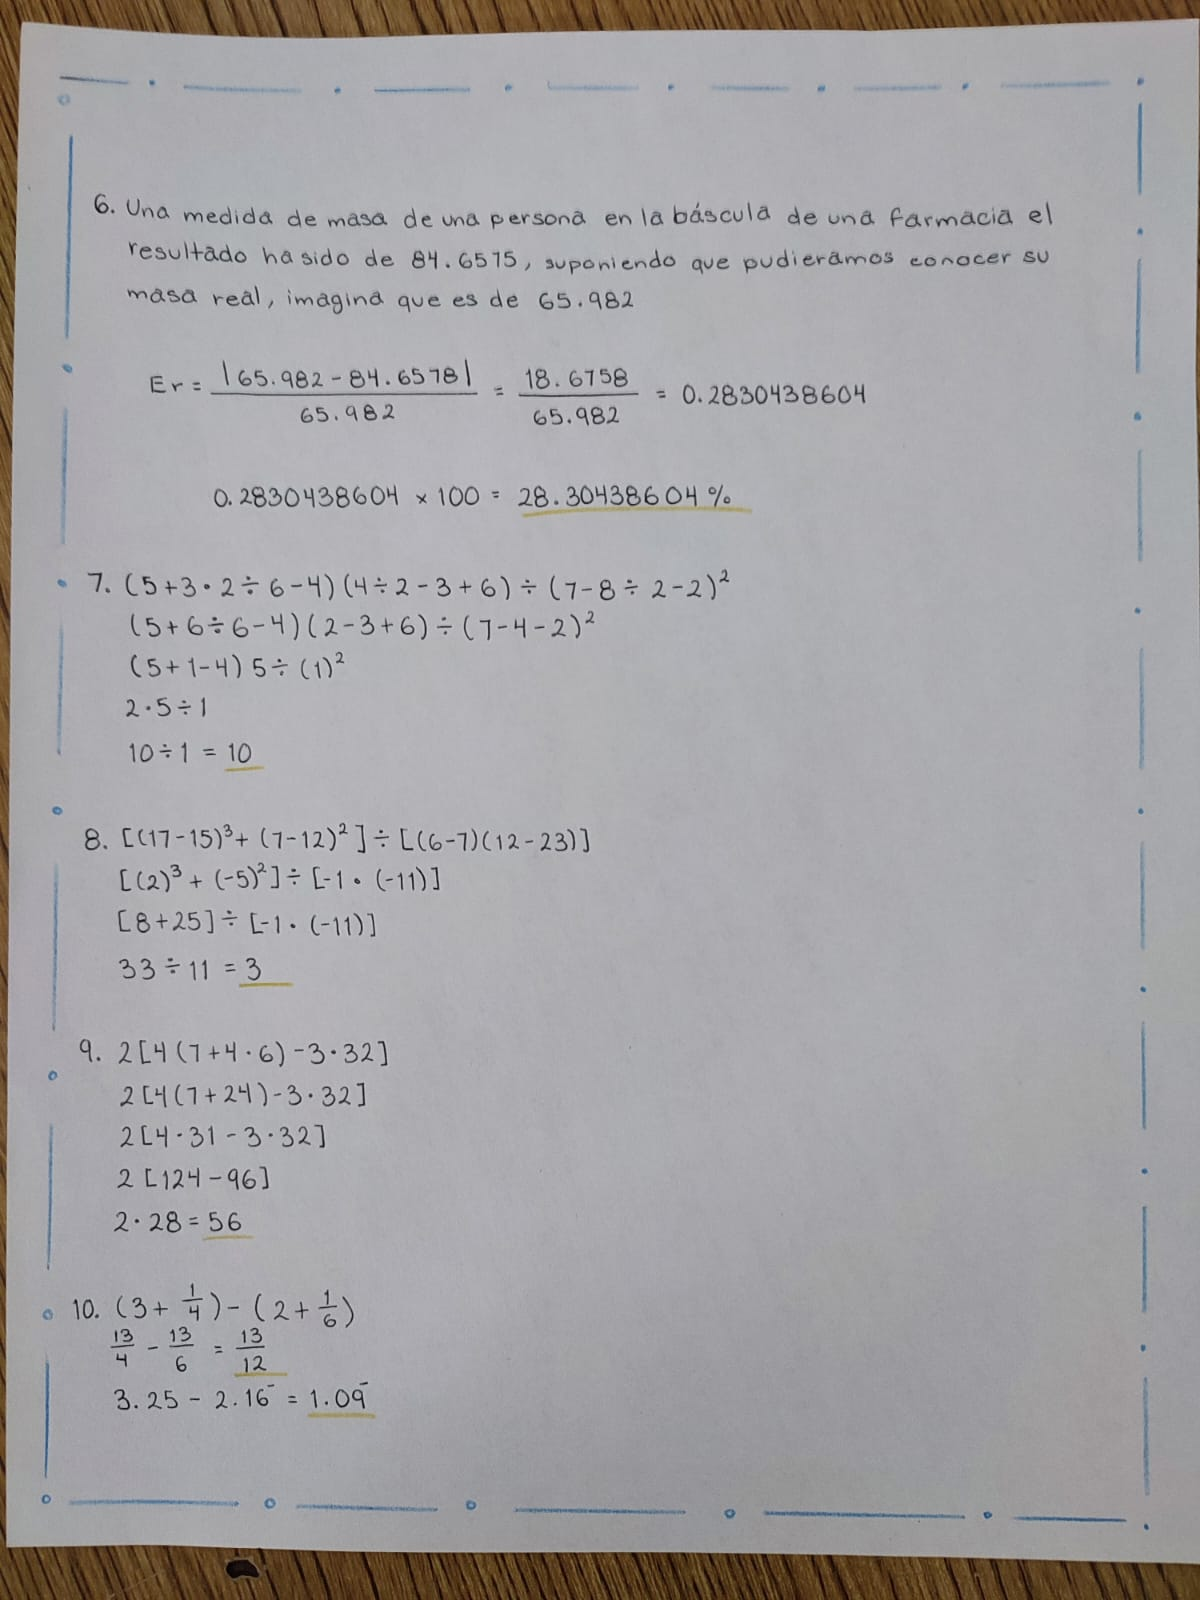 6. Una medida de masa de una persona en la báscula de una farmacia el
resultado ha sido de 84.6575, suponiendo que pudieramos conocer su
masa real, imagina que es de 65.982
Er = |65.982 - 84.6578| / 65.982 = 18.6758 / 65.982 = 0.2830438604
0.2830438604 × 100 = 28.30438604 %
7. (5+3·2÷6-4)(4÷2-3+6)÷(7-8÷2-2)²
(5+6÷6-4)(2-3+6)÷(7-4-2)²
(5+1-4) 5÷(1)²
2·5÷1
10÷1 = 10
8. [(17-15)³+(7-12)²]÷[(6-7)(12-23)]
[(2)³+(-5)²]÷[-1·(-11)]
[8+25]÷[-1·(-11)]
33÷11 = 3
9. 2[4(7+4·6)-3·32]
2[4(7+24)-3·32]
2[4·31-3·32]
2[124-96]
2·28=56
10. (3+1/4)-(2+1/6)
13/4 - 13/6 = 13/12
3.25 - 2.16̄ = 1.09̄